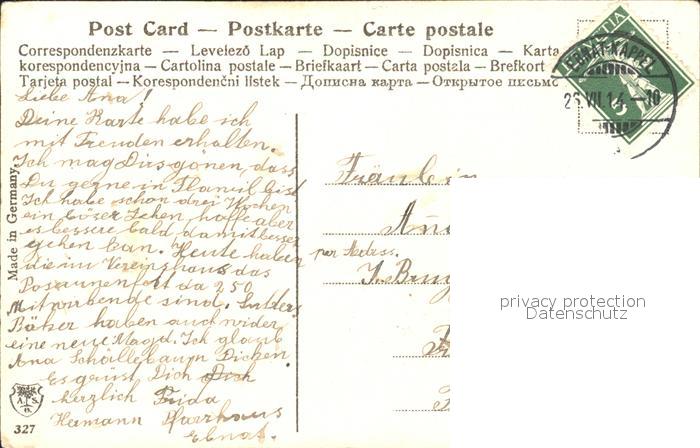 Post Card — Postkarte — Carte postale
Correspondenzkarte — Levelező Lap — Dopisnice — Dopisnica — Karta
korespondencyjna — Cartolina postale — Briefkaart — Carta postala — Brefkort
Tarjeta postal — Korespondenční listek — Дописна карта — Открытое письмо
HELVETIA
5
EBNAT-KAPPEL
26.VII.14.–10
Made in Germany.
Liebe Ana!
Deine Karte habe ich
mit Freuden erhalten.
Ich mag Dirs gönen, dass
Du gerne in Flawil bist
Ich habe schon drei Wochen
ein böser Zehen, hoffe aber
es bessere bald damit besser
gehen kan. Heute haben
die im Vereinshaus das
Posaunenfest da 250
Mitwirbende sind.
haben auch wider
eine neue Magd. Ich glaub
Ana Schällebaum Dicken.
Es grüst Dich Dich
herzlich Frida
Hermann Pfarrhaus
Ebnat.
Fräulein
per Adress.
privacy protection
Datenschutz
A.S.
327